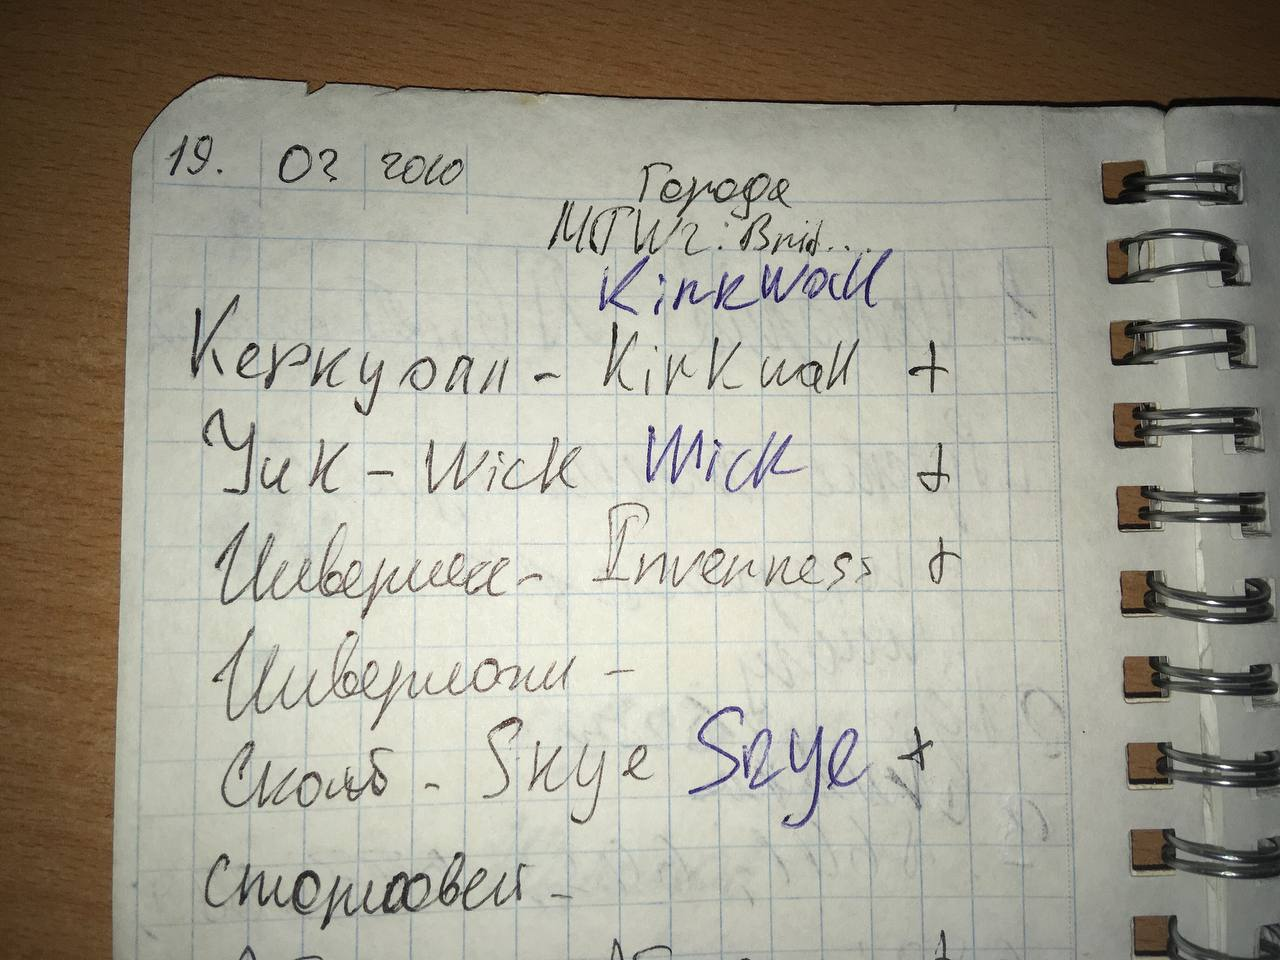 19. 03 2010
Города
MTW2: Brit...
Kirkwall
Керкуолл - Kirkwall +
Уик - Wick Wick +
Инвернесс - Invenness +
Инверлохи -
Skye Skye +
Сторновей -